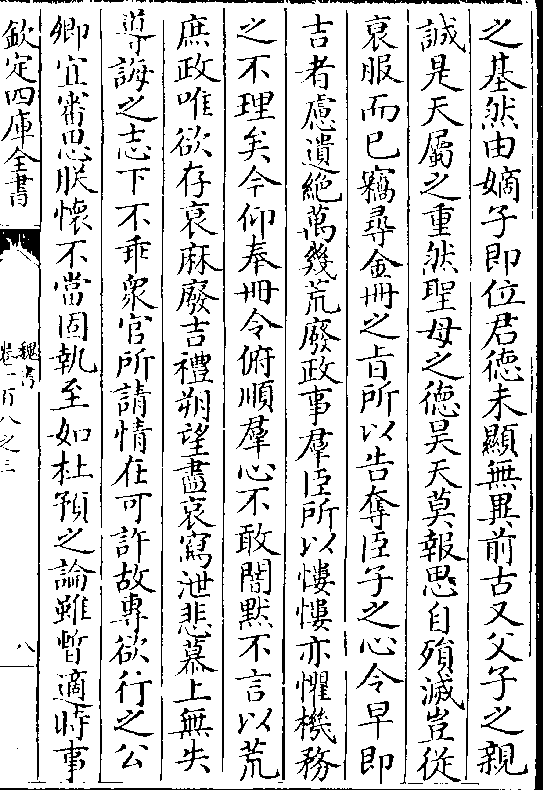 之基然由嫡子即位君徳未顯無異前古又父子之親
誠是天屬之重然聖母之徳昊天莫報思自殞滅豈從
衰服而已竊尋金冊之㫖所以告奪臣子之心令早即
吉者慮遺絶萬幾荒廢政事羣臣所以慺慺亦懼機務
之不理矣今仰奉冊令俯順羣心不敢闇默不言以荒
庶政唯欲存衰麻廢吉禮朔望盡哀寫泄悲慕上無失
導誨之志下不乖衆官所請情在可許故專欲行之公
卿宜審思朕懷不當固執至如杜預之論雖暫適時事
欽定四庫全書
魏書
卷一百八之三
八